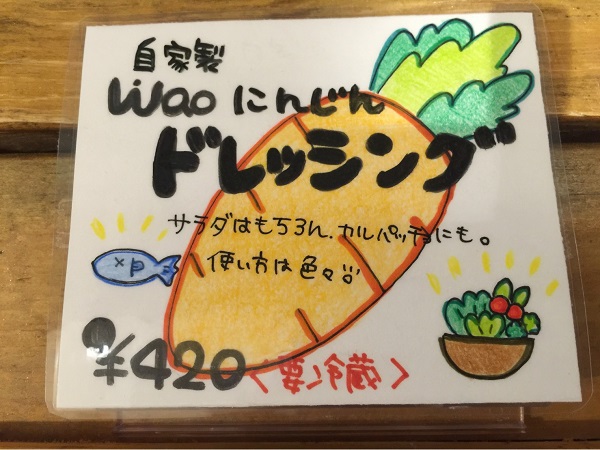 自家製
Wao にんじん
ドレッシング
サラダはもちろん、カルパッチョにも。
使い方は色々
¥420
<要冷蔵>